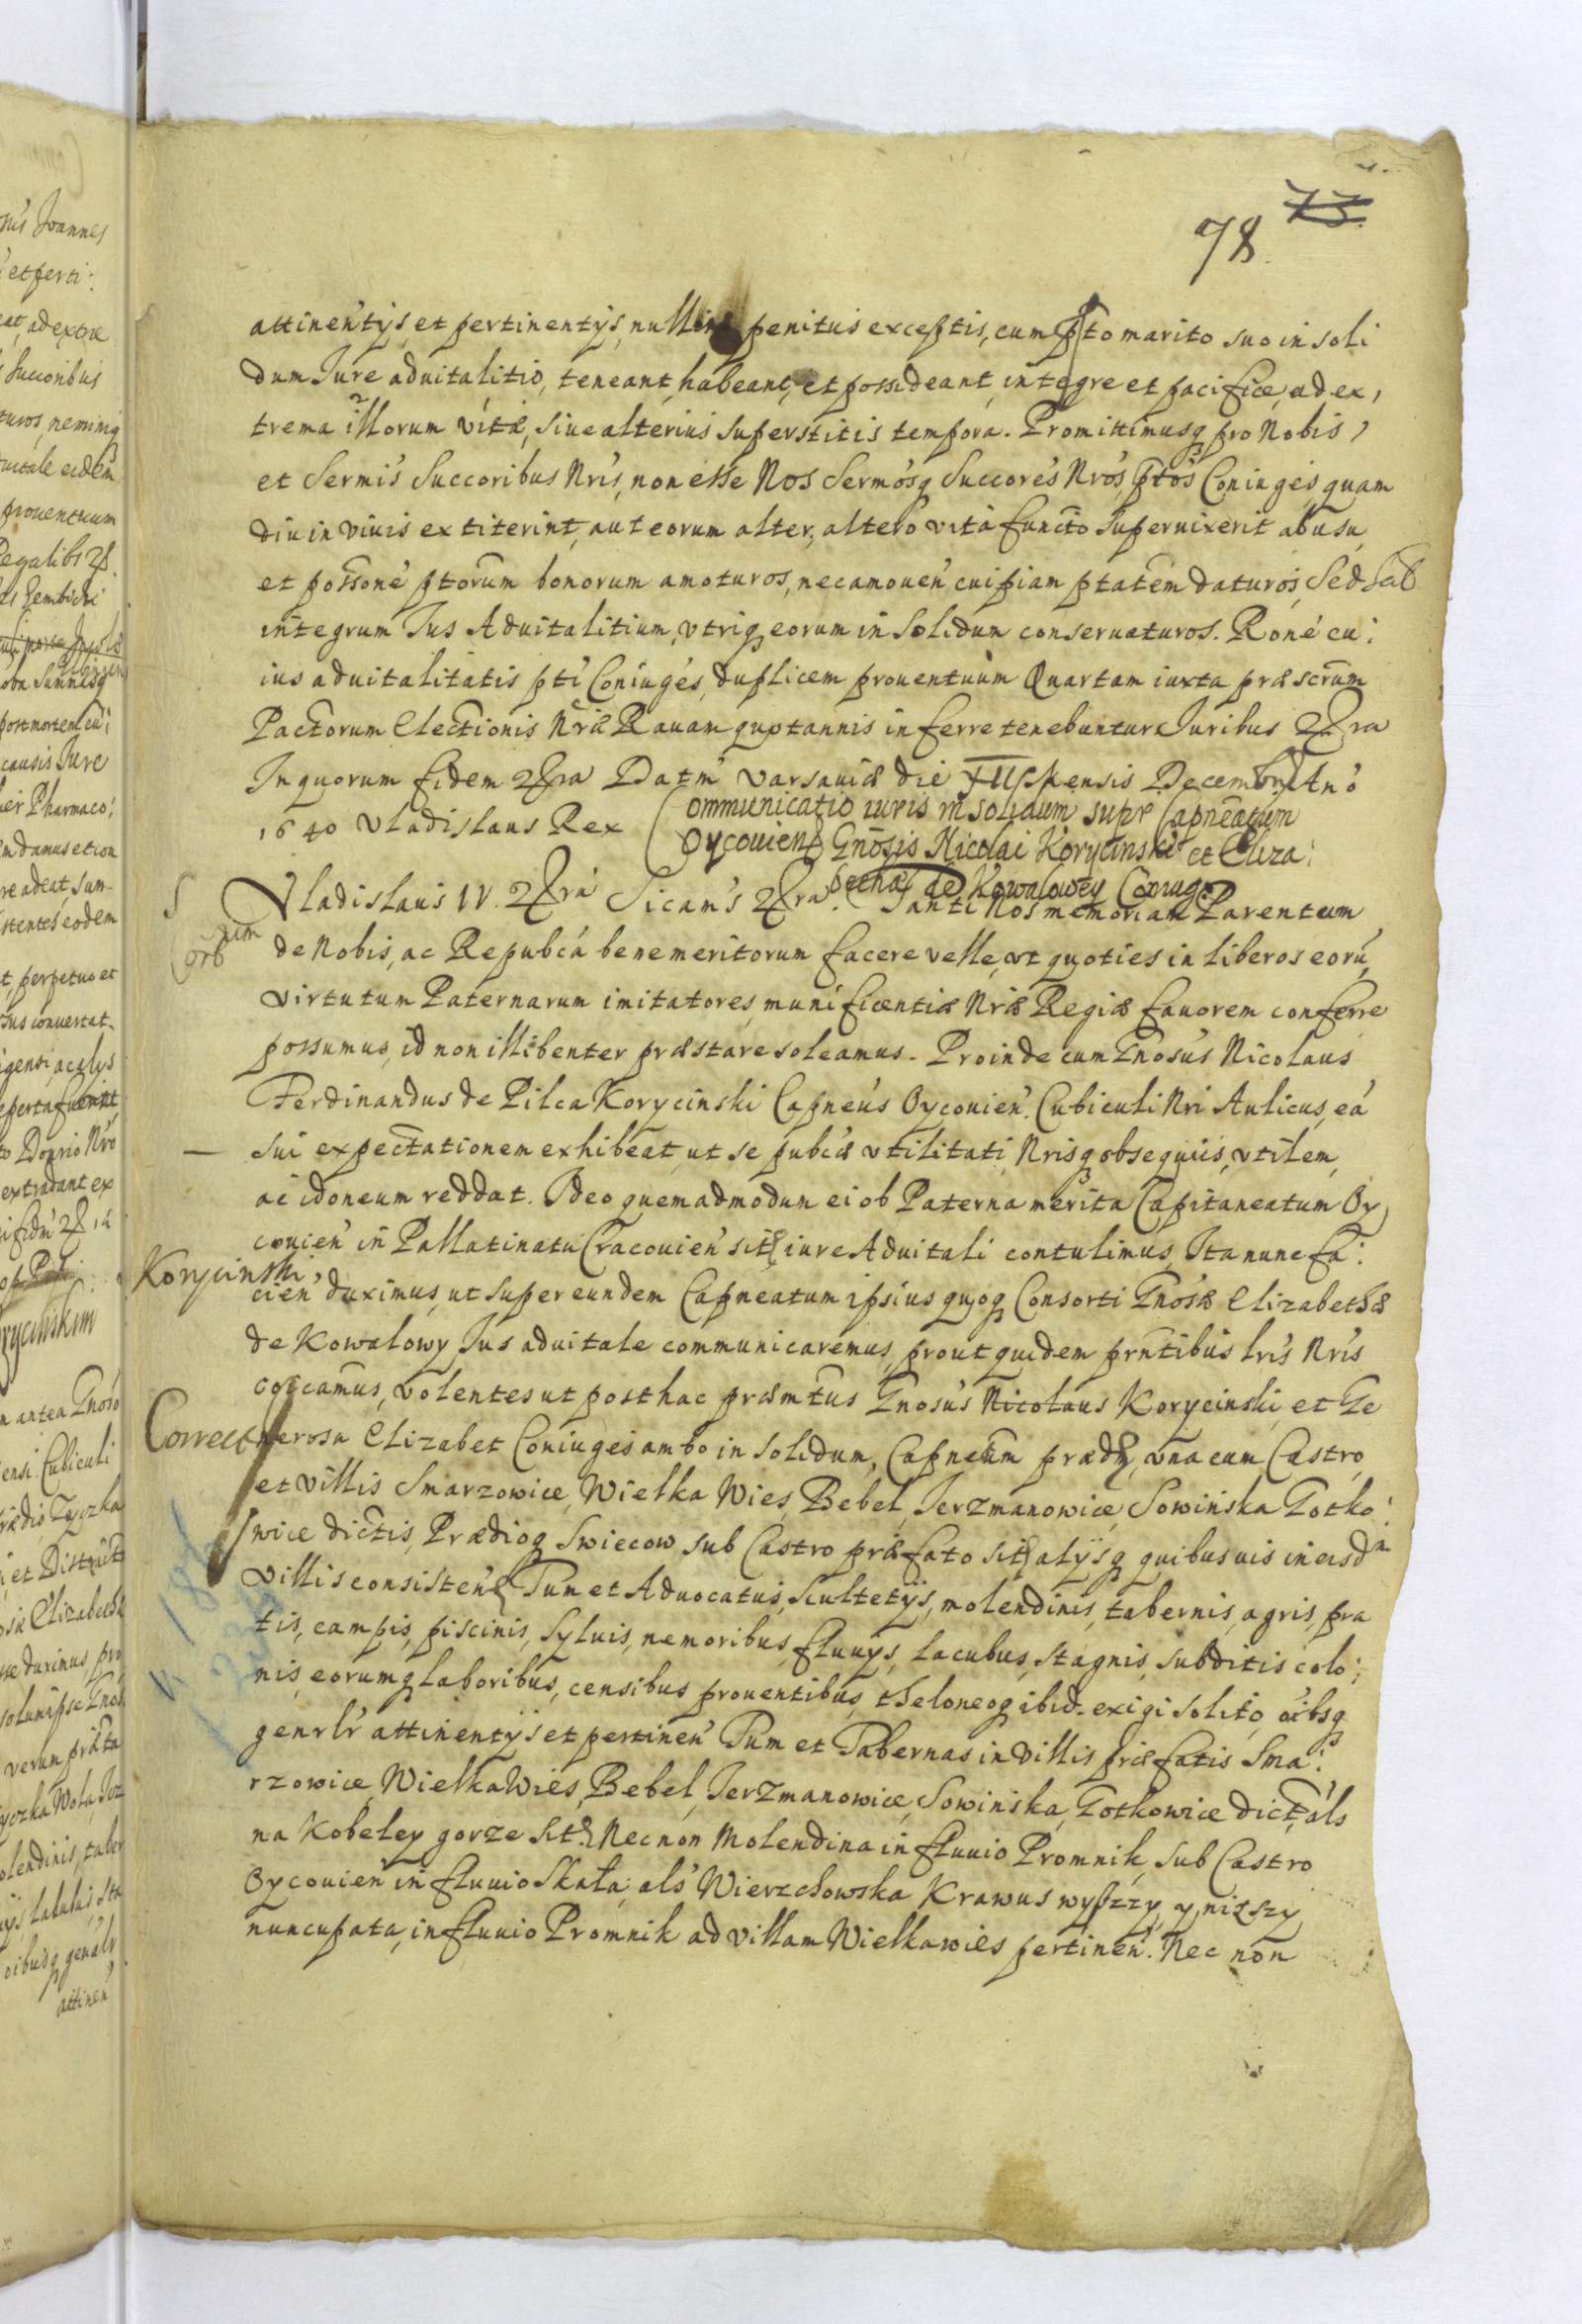 73.
78.
attinentijs, et pertinentijs, nullis penitus exceptis, cum pto marito suo in soli
dum Iure aduitalitio, teneant, habeant, et possideant, integre et pacifice, ad ex,
trema illorum vitæ, siue alterius superstitis tempora. Promittimusq pro Nobis,
et Sermis Succoribus Nris, non esse Nos Sermosq Succores Nros, ptos Coniuges, quam
diu in viuis extiterint, aut eorum alter, altero vita functo superuixerit ab usu
et possone ptorum bonorum amoturos, nec amouen cuipiam ptatem daturos, Sed sal
integrum Ius Aduitalitium, vtriq eorum in solidum conseruaturos. Rone cu:
ius aduitalitatis pti Coniuges, duplicem prouentuum Quartam iuxta præscrum
Pactorum Electionis Nræ Rauam quotannis inferre tenebuntur. Iuribus &ra
In quorum fidem &ra Datm Varsauiæ die Mensis Decembris Ano
1640 Vladislaus Rex
Communicatio iuris in solidum supr Capneatum
Oycouien Gnosis Nicolai Korycinski et Eliza:
bethæ de Kowalowey Coniugi
Vladislaus IV. &ra Sicams &ra. Tanti Nos memoriam Parentum
de Nobis, ac Repubca benemeritorum facere velle, vt quoties in liberos eorū,
virtutum Paternarum imitatores, munificentiæ Nræ Regiæ fauorem conferre
possumus, id non illibenter præstare soleamus. Proinde cum Gnosus Nicolaus
Ferdinandus de Pilca Korycinski Capneus Oycouien. Cubiculi Nri Aulicus, ea
sui expectationem exhibeat, ut se pubcæ vtilitati, Nrisq obsequiis, vtilem,
ac idoneum reddat. Ideo quemadmodum ei ob Paterna merita Capitaneatum Oy
couien in Pallatinatu Cracouien sit iure Aduitali contulimus, Ita nunc fa:
Korycinski
cien duximus, ut super eundem Capneatum ipsius quoq Consorti Gnosæ Elizabethæ
de Kowalowy Ius aduitale communicaremus, prout quidem prntibus lris Nris
coicamus, volentes ut posthac præmtus Gnosus Nicolaus Korycinski, et Ge
Correct
nerosa Elizabet Coniuges ambo in solidum, Capneum præd, vna cum Castro
et villis Smarzowice, Wielka Wies, Bebel, Ierzmanowice, Sowińska Gotko:
wice dictis, Prædioq Swiecow sub Castro præfato sit alijsq quibusuis in eisdm
villis consisten Tum et Aduocatus, Scultetijs, molendinis, tabernis, agris, pra
tis, campis, piscinis, syluis, nemoribus, fluuijs, lacubus, stagnis, subditis colo:
nis, eorumq laboribus, censibus prouentibus, theloneoq ibid. exigi solito, oibsq
genrlr attinentijs et pertinen Tum et Tabernas in Villis præfatis Sma:
rzowice, Wielka Wies, Bebel, Ierzmanowice, Sowinska, Gotkowice dict, als
na Kobeley gorze sit. Nec non Molendina in fluuio Promnik, sub Castro
Oycouien in fluuio Skała, als Wierzchowska Krawus wyszzy, y nizszy
nuncupata, in fluuio Promnik ad villam Wielkawies pertinen. Nec non